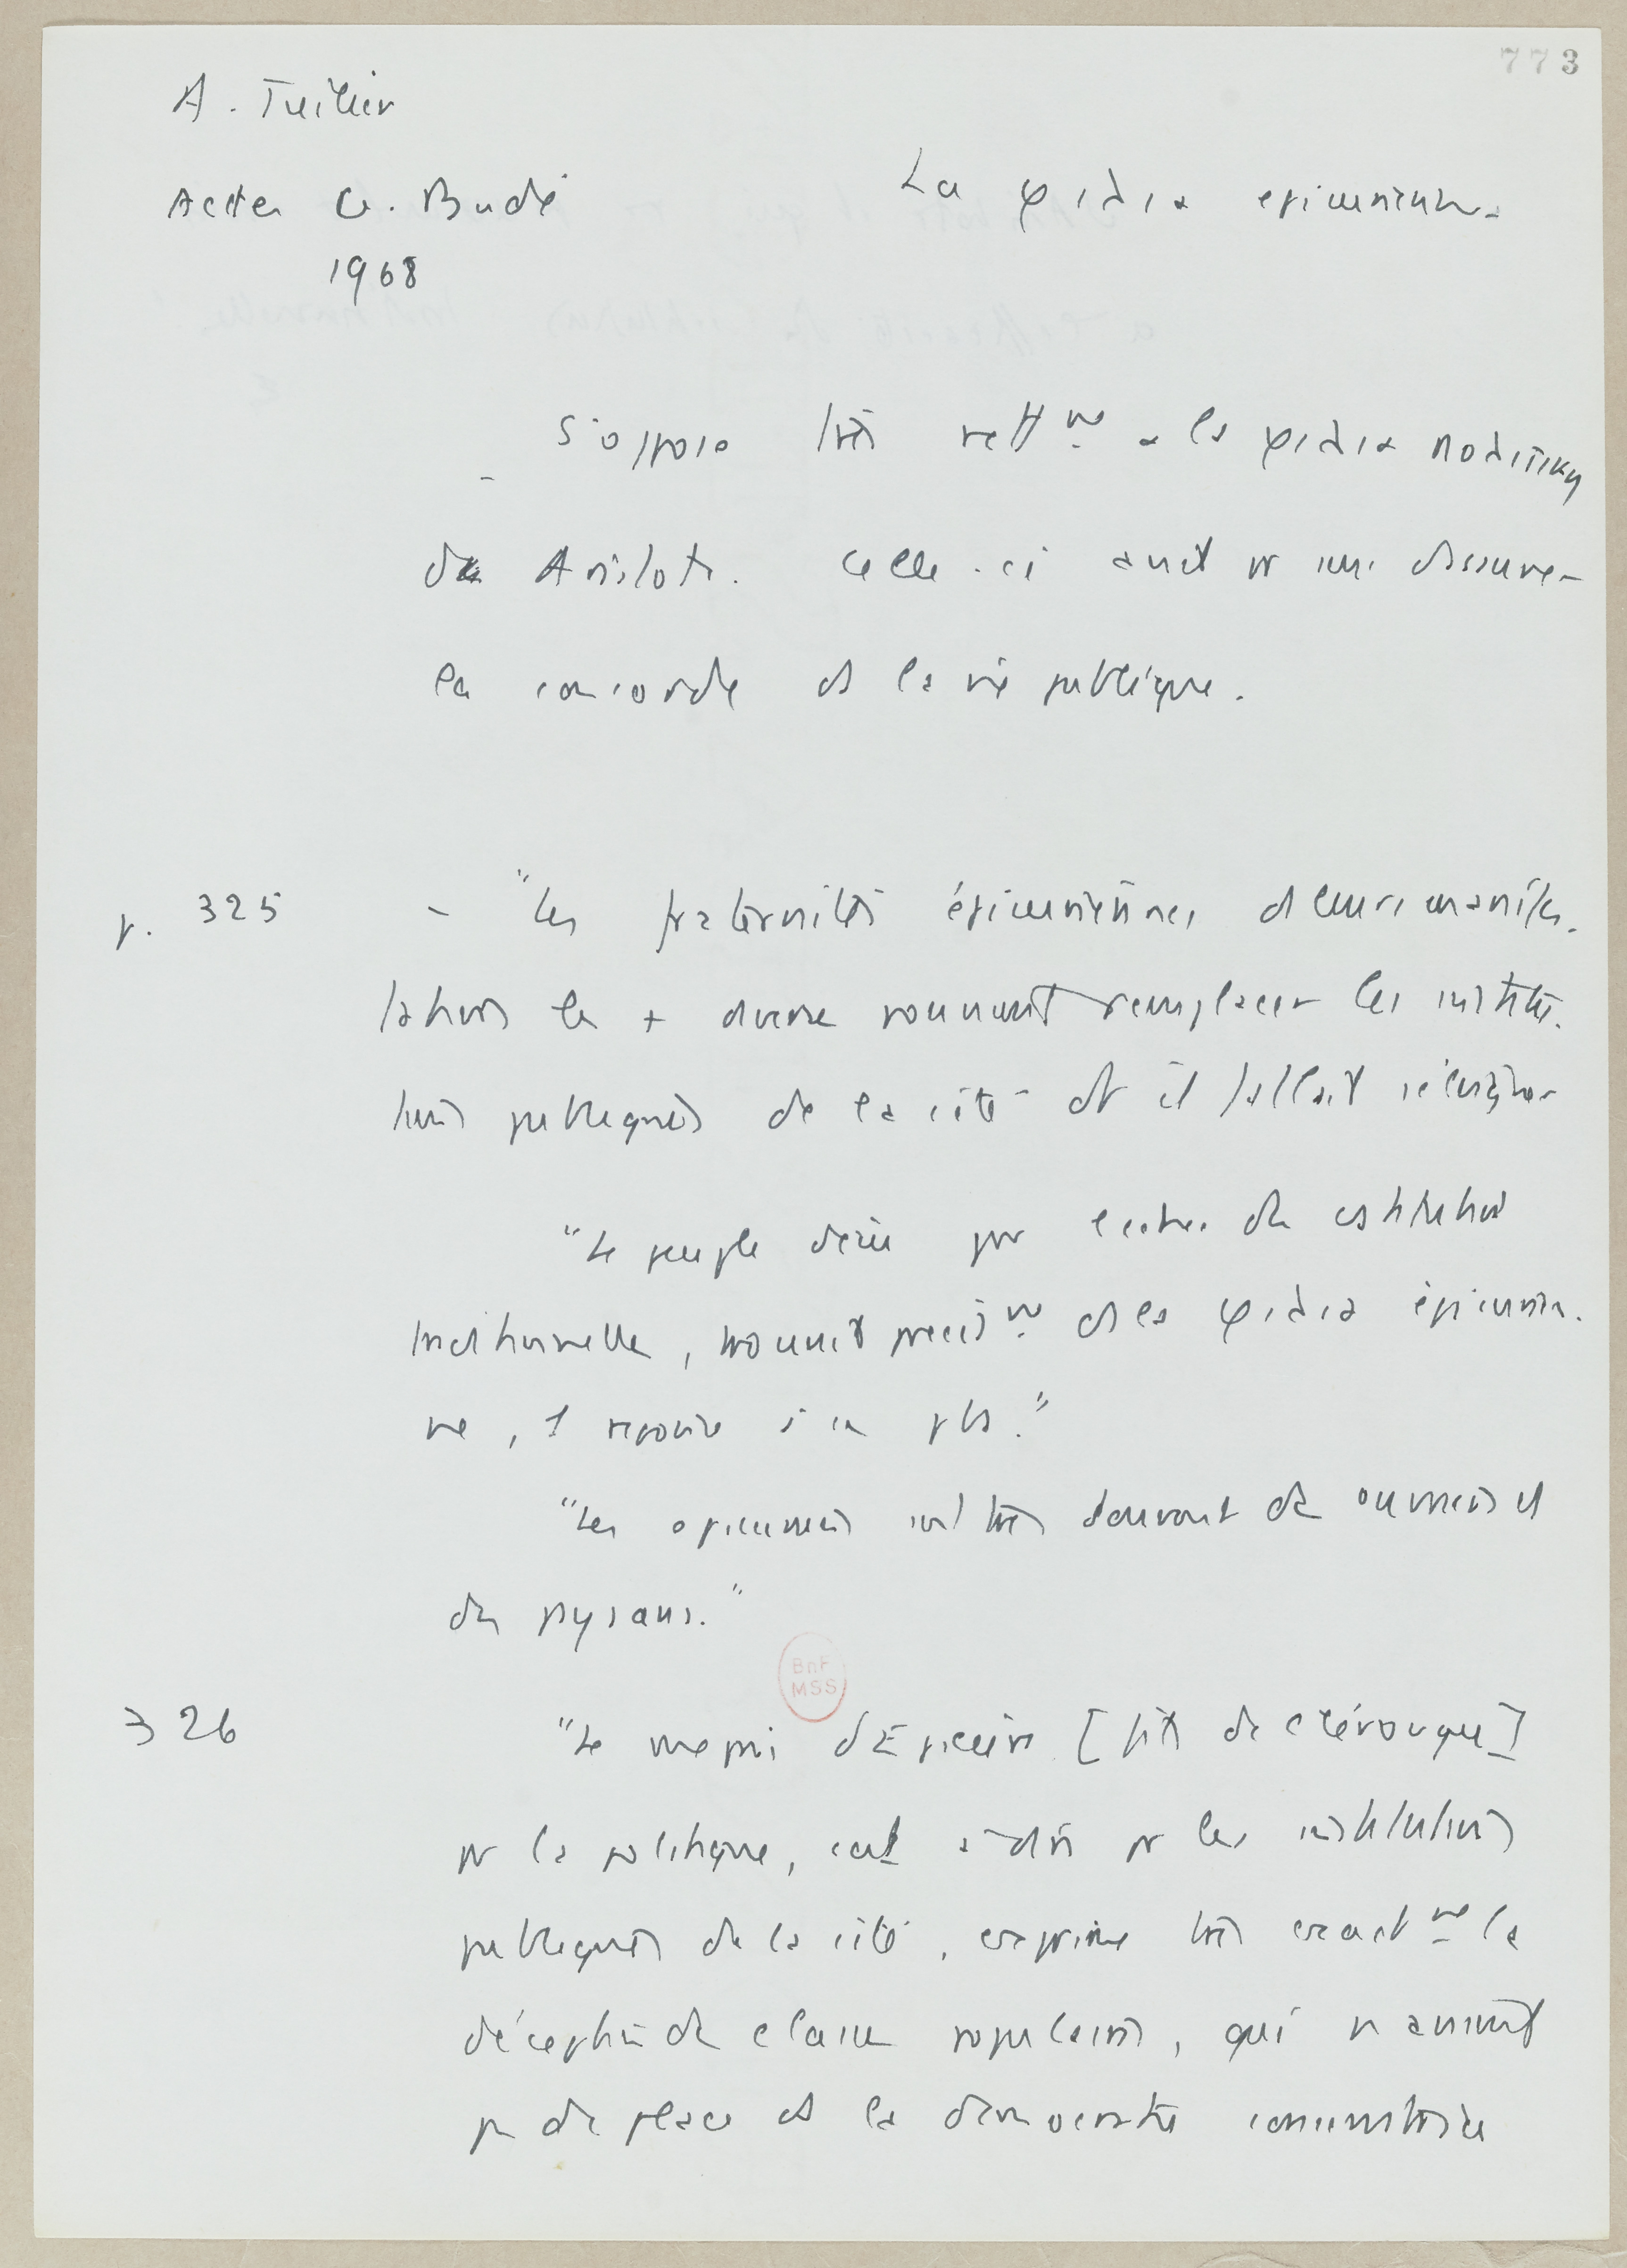 773
A. Tuilier
Actes G. Budé
1968
La φιλια epicurienne
- S'oppose très nettmt a la φιλια πολιτικη
de Aristote. Celle-ci avait pr but d'assurer
la concorde ds la vie publique.
p. 325 - "Les fraternités épicuriennes ds leurs manifes-
tations les + diverses pouvaient remplacer les institu-
tions publiques de la cité dt il fallait s'éloigner
"Le peuple déçu par l'échec des institutions
traditionnelles, trouvait précismt ds la φιλια épicurien-
ne, 1 réponse à ses pbs."
"Les epicuriens sont très souvent des ouvriers et
des paysans."
326 "Le mepris d'Epicure [fils de clérouque]
pr la politique, cad pr les institutions
publiques de la cité, exprime très exactmt la
déception des classes populaires, qui n'avaient
pas de place ds la démocratie censitaire